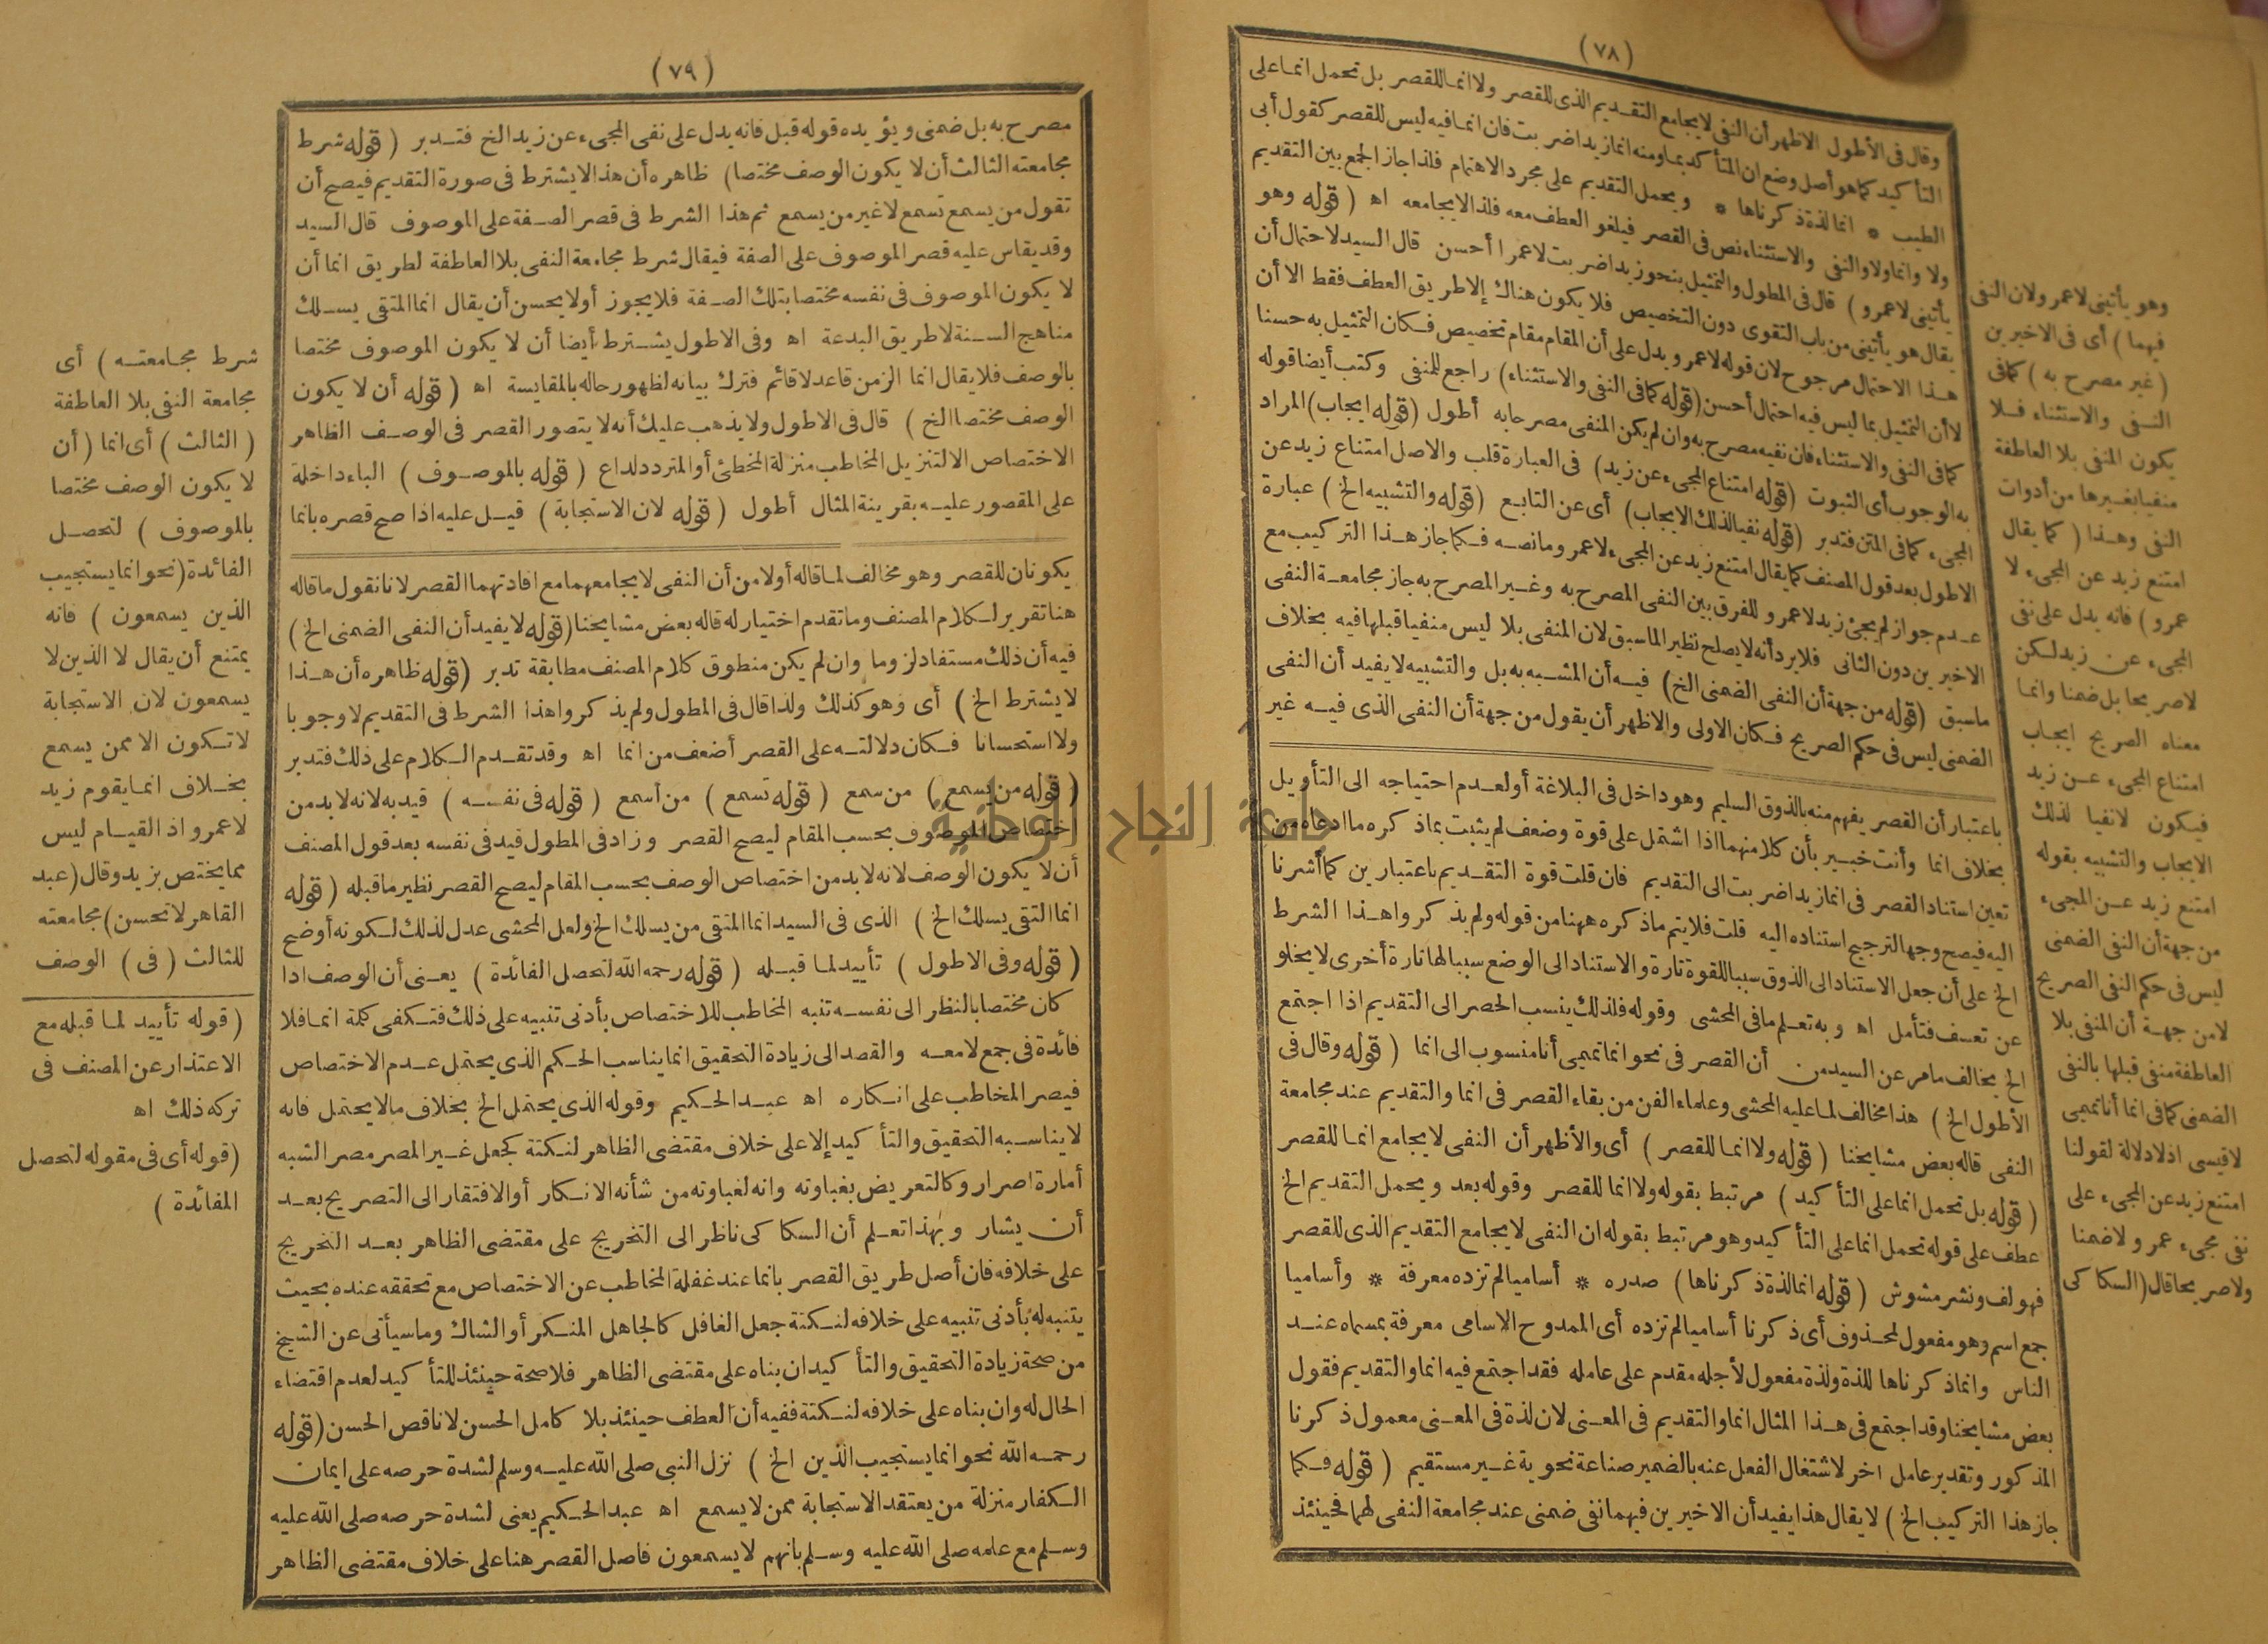 (٧٨)
وقال فى الأطول الاظهر أن النفى لا يجامع التقديم الذى للقصر ولا انما للقصر بل تحمل انما على
التأكيد كما هو أصل وضع ان المتأكد بما ومنه انما زيدا ضربت فان انما فيه ليس للقصر كقول أبى
الطيب * انما لذة ذكرناها * ويحمل التقديم على مجرد الاهتمام فلذا جاز الجمع بين التقديم
ولا وانما ولا والنفى والاستثناء نص فى القصر فيلغو العطف معه فلذا لا يجامعه اه (قوله وهو
يأتينى لا عمرو) قال فى المطول والتمثيل بنحو زيدا ضربت لا عمرا أحسن قال السيد لاحتمال أن
يقال هو يأتينى من باب التقوى دون التخصيص فلا يكون هناك إلا طريق العطف فقط الا أن
هذا الاحتمال مرجوح لان قوله لا عمرو يدل على أن المقام مقام تخصيص فكان التمثيل به حسنا
لا أن التمثيل بما ليس فيه احتمال أحسن (قوله كما فى النفى والاستثناء) راجع للمنفى وكتب أيضا قوله
كما فى النفى والاستثناء فان نفيه مصرح به وان لم يكن المنفى مصرحا به أطول (قوله ايجاب) المراد
به الوجوب أى الثبوت (قوله امتناع المجىء عن زيد) فى العبارة قلب والاصل امتناع زيد عن
المجىء كما فى المتن فتدبر (قوله نفيا لذلك الايجاب) أى عن التابع (قوله والتشبيه الخ) عبارة
الاطول بعد قول المصنف كما يقال امتنع زيد عن المجىء لا عمرو ما نصه فكما جاز هذا التركيب مع
عدم جواز لم يجئ زيد لا عمرو للفرق بين النفى المصرح به وغير المصرح به جاز مجامعة النفى
الاخيرين دون الثانى فلا يرد أنه لا يصلح نظير الماسبق لان المنفى بلا ليس منفيا قبلها فيه بخلاف
ماسبق (قوله من جهة أن النفى الضمنى الخ) فيه أن المشبه به بل والتشبيه لا يفيد أن النفى
الضمنى ليس فى حكم الصريح فكان الاولى والاظهر أن يقول من جهة أن النفى الذى فيه غير
باعتبار أن القصر يفهم منه بالذوق السليم وهو داخل فى البلاغة أو لعدم احتياجه الى التأويل
بخلاف انما وأنت خبير بأن كلا منهما اذا اشتمل على قوة وضعف لم يثبت بماذكره ما ادعاه من
تعين استناد القصر فى انما زيدا ضربت الى التقديم فان قلت قوة التقديم باعتبارين كما أشرنا
اليه فيصح وجها لترجيح استناده اليه قلت فلا يتم ماذكره ههنا من قوله ولم يذكروا هذا الشرط
الخ على أن جعل الاستناد الى الذوق سببا للقوة تارة والاستناد الى الوضع سببا لها تارة أخرى لا يخلو
عن تعسف فتأمل اه وبه تعلم ما فى المحشى وقوله فلذلك ينسب الحصر الى التقديم اذا اجتمع
الخ يخالف مامر عن السيد من أن القصر فى نحو انما تميمى أنا منسوب الى انما (قوله وقال فى
الأطول الخ) هذا مخالف لما عليه المحشى وعلماء الفن من بقاء القصر فى انما والتقديم عند مجامعة
النفى قاله بعض مشايخنا (قوله ولا انما للقصر) أى والأظهر أن النفى لا يجامع انما للقصر
(قوله بل تحمل انما على التأكيد) مرتبط بقوله ولا انما للقصر وقوله بعد ويحمل التقديم الخ
عطف على قوله تحمل انما على التأكيد وهو مرتبط بقوله ان النفى لا يجامع التقديم الذى للقصر
فهو لف ونشر مشوش (قوله انما لذة ذكرناها) صدره * أساميا لم تزده معرفة * وأساميا
جمع اسم وهو مفعول لمحذوف أى ذكرنا أساميا لم تزده أى الممدوح الاسامى معرفة بمسماه عند
الناس وانما ذكرناها للذة ولذة مفعول لأجله مقدم على عامله فقد اجتمع فيه انما والتقديم فقول
بعض مشايخنا وقد اجتمع فى هذا المثال انما والتقديم فى المعنى لان لذة فى المعنى معمول ذكرنا
المذكور وتقدير عامل اخر لاشتغال الفعل عنه بالضمير صناعة نحوية غير مستقيم (قوله فكما
جاز هذا التركيب الخ) لا يقال هذا يفيد أن الاخيرين فيهما نفى ضمنى عند مجامعة النفى لهما فحينئذ
وهو يأتينى لا عمرو لان النفى
فيهما) أى فى الاخيرين
(غير مصرح به) كما فى
النفى والاستثناء فلا
يكون المنفى بلا العاطفة
منفيا بغيرها من أدوات
النفى وهذا (كما يقال
امتنع زيد عن المجىء لا
عمرو) فانه يدل على نفى
المجىء عن زيد لكن
لا صريحا بل ضمنا وانما
معناه الصريح ايجاب
امتناع المجىء عن زيد
فيكون لا نفيا لذلك
الايجاب والتشبيه بقوله
امتنع زيد عن المجىء
من جهة أن النفى الضمنى
ليس فى حكم النفى الصريح
لا من جهة أن المنفى بلا
العاطفة منفى قبلها بالنفى
الضمنى كما فى انما أنا تميمى
لا قيسى اذ لا دلالة لقولنا
امتنع زيد عن المجىء على
نفى مجىء عمرو لا ضمنا
ولا صريحا قال (السكاكى
(٧٩)
مصرح به بل ضمنى ويؤيده قوله قبل فانه يدل على نفى المجىء عن زيد الخ فتدبر (قوله شرط
مجامعته الثالث أن لا يكون الوصف مختصا) ظاهره أن هذا لا يشترط فى صورة التقديم فيصح أن
تقول من يسمع تسمع لا غير من يسمع ثم هذا الشرط فى قصر الصفة على الموصوف قال السيد
وقد يقاس عليه قصر الموصوف على الصفة فيقال شرط مجامعة النفى بلا العاطفة لطريق انما أن
لا يكون الموصوف فى نفسه مختصا بتلك الصفة فلا يجوز أو لا يحسن أن يقال انما المتقى يسلك
مناهج السنة لا طريق البدعة اه وفى الاطول يشترط أيضا أن لا يكون الموصوف مختصا
بالوصف فلا يقال انما الزمن قاعد لا قائم فترك بيانه لظهور حاله بالمقايسة اه (قوله أن لا يكون
الوصف مختصا الخ) قال فى الاطول ولا يذهب عليك أنه لا يتصور القصر فى الوصف الظاهر
الاختصاص الا لتنزيل المخاطب منزلة المخطئ أو المتردد لداع (قوله بالموصوف) الباء داخلة
على المقصور عليه بقرينة المثال أطول (قوله لان الاستجابة) قيل عليه اذا صح قصره بانما
يكونان للقصر وهو مخالف لما قاله أولا من أن النفى لا يجامعهما مع افادتهما القصر لانا نقول ما قاله
هنا تقرير لكلام المصنف وما تقدم اختيار له قاله بعض مشايخنا (قوله لا يفيد أن النفى الضمنى الخ)
فيه أن ذلك مستفاد لزوما وان لم يكن منطوق كلام المصنف مطابقة تدبر (قوله ظاهره أن هذا
لا يشترط الخ) أى وهو كذلك ولذا قال فى المطول ولم يذكروا هذا الشرط فى التقديم لا وجوبا
ولا استحسانا فكان دلالته على القصر أضعف من انما اه وقد تقدم الكلام على ذلك فتدبر
(قوله من يسمع) من سمع (قوله تسمع) من أسمع (قوله فى نفسه) قيد به لانه لا بد من
اختصاص الموصوف بحسب المقام ليصح القصر وزاد فى المطول قيد فى نفسه بعد قول المصنف
أن لا يكون الوصف لانه لا بد من اختصاص الوصف بحسب المقام ليصح القصر نظير ما قبله (قوله
انما المتقى يسلك الخ) الذى فى السيد انما المتقى من يسلك الخ ولعل المحشى عدل لذلك لكونه أوضح
(قوله وفى الاطول) تأييد لما قبله (قوله رحمه الله لتحصل الفائدة) يعنى أن الوصف اذا
كان مختصا بالنظر الى نفسه تنبه المخاطب للاختصاص بأدنى تنبيه على ذلك فتكفى كلمة انما فلا
فائدة فى جمع لا معه والقصد الى زيادة التحقيق انما يناسب الحكم الذى يحتمل عدم الاختصاص
فيصر المخاطب على انكاره اه عبد الحكيم وقوله الذى يحتمل الخ بخلاف ما لا يحتمل فانه
لا يناسبه التحقيق والتأكيد إلا على خلاف مقتضى الظاهر لنكتة كجعل غير المصر مصر الشبه
أمارة اصرار وكالتعريض بغباوته وانه لغباوته من شأنه الانكار أو الافتقار الى التصريح بعد
أن يشار وبهذا تعلم أن السكاكى ناظر الى التخريج على مقتضى الظاهر بعد التخريج
على خلافه فان أصل طريق القصر بانما عند غفلة المخاطب عن الاختصاص مع تحققه عنده بحيث
يتنبه له بأدنى تنبيه على خلافه لنكتة جعل الغافل كالجاهل المنكر أو الشاك وما سيأتى عن الشيخ
من صحة زيادة التحقيق والتأكيد ان بناه على مقتضى الظاهر فلا صحة حينئذ للتأكيد لعدم اقتضاء
الحال له وان بناه على خلافه لنكتة ففيه أن العطف حينئذ بلا كامل الحسن لا ناقص الحسن (قوله
رحمه الله نحو انما يستجيب الذين الخ) نزل النبى صلى الله عليه وسلم لشدة حرصه على ايمان
الكفار منزلة من يعتقد الاستجابة ممن لا يسمع اه عبد الحكيم يعنى لشدة حرصه صلى الله عليه
وسلم مع علمه صلى الله عليه وسلم بانهم لا يسمعون فاصل القصر هنا على خلاف مقتضى الظاهر
شرط مجامعته) أى
مجامعة النفى بلا العاطفة
(الثالث) أى انما (أن
لا يكون الوصف مختصا
بالموصوف) لتحصل
الفائدة (نحو انما يستجيب
الذين يسمعون) فانه
يمتنع أن يقال لا الذين لا
يسمعون لان الاستجابة
لا تكون الا ممن يسمع
بخلاف انما يقوم زيد
لا عمرو اذ القيام ليس
مما يختص بزيد وقال (عبد
القاهر لا تحسن) مجامعته
للثالث (فى) الوصف
(قوله تأييد لما قبله مع
الاعتذار عن المصنف فى
تركه ذلك اه
(قوله أى فى مقوله لتحصل
الفائدة)
جامعة النجاح الوطنية